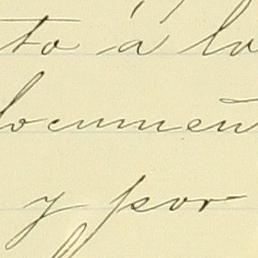 to á lo
documen
y por